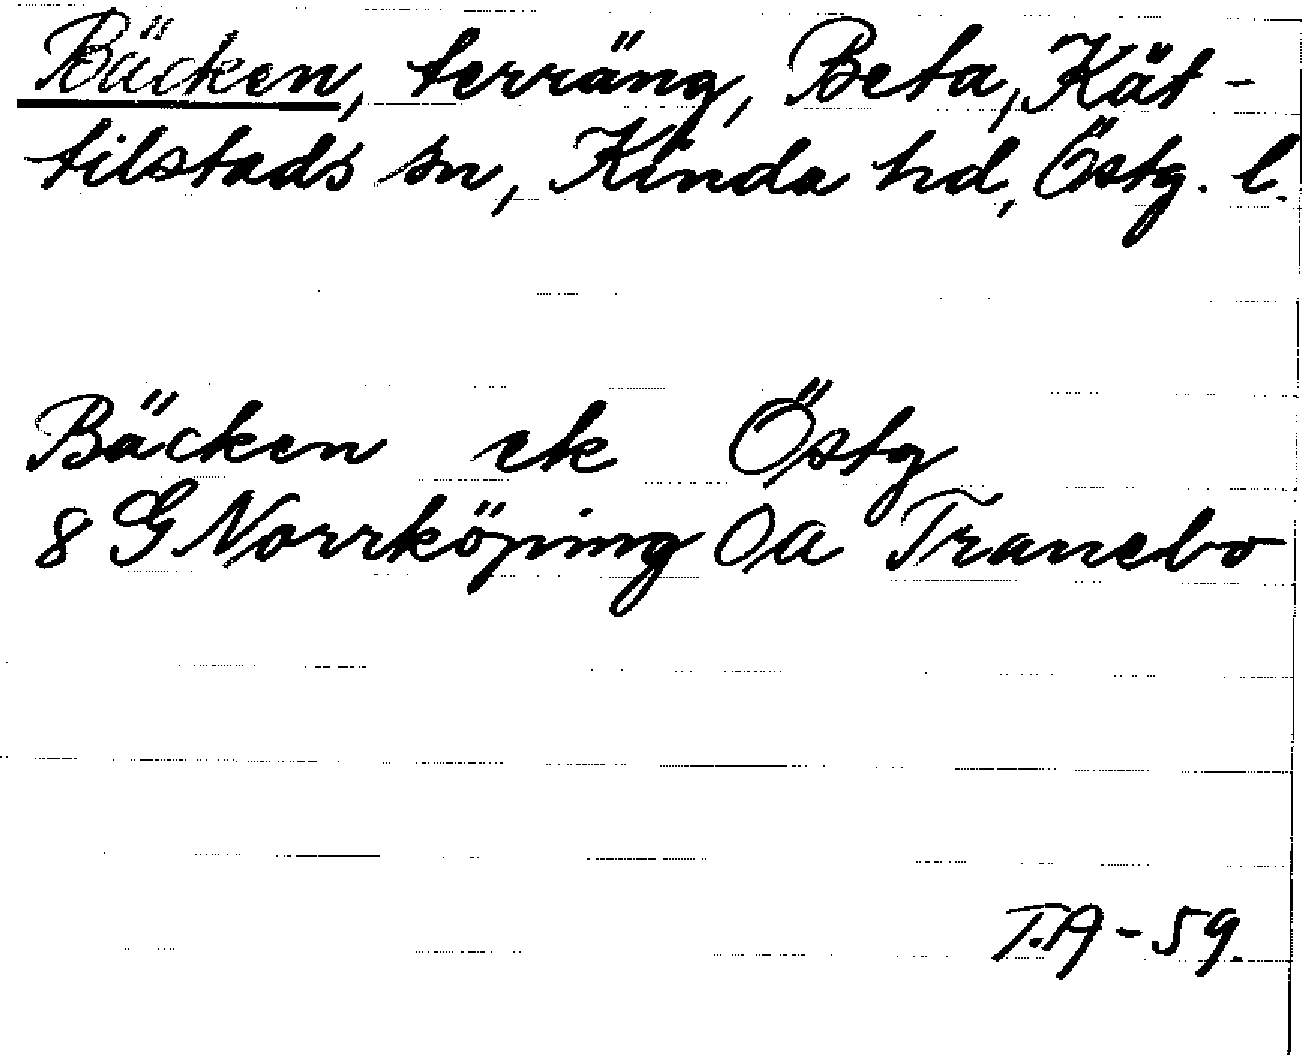 Bäcken, terräng, Beta, Kät-
tilstads sn, Kinda hd, Östg. l.
Bäcken ek Östg
8 G Norrköping Oa Tranebo
T.A-59.